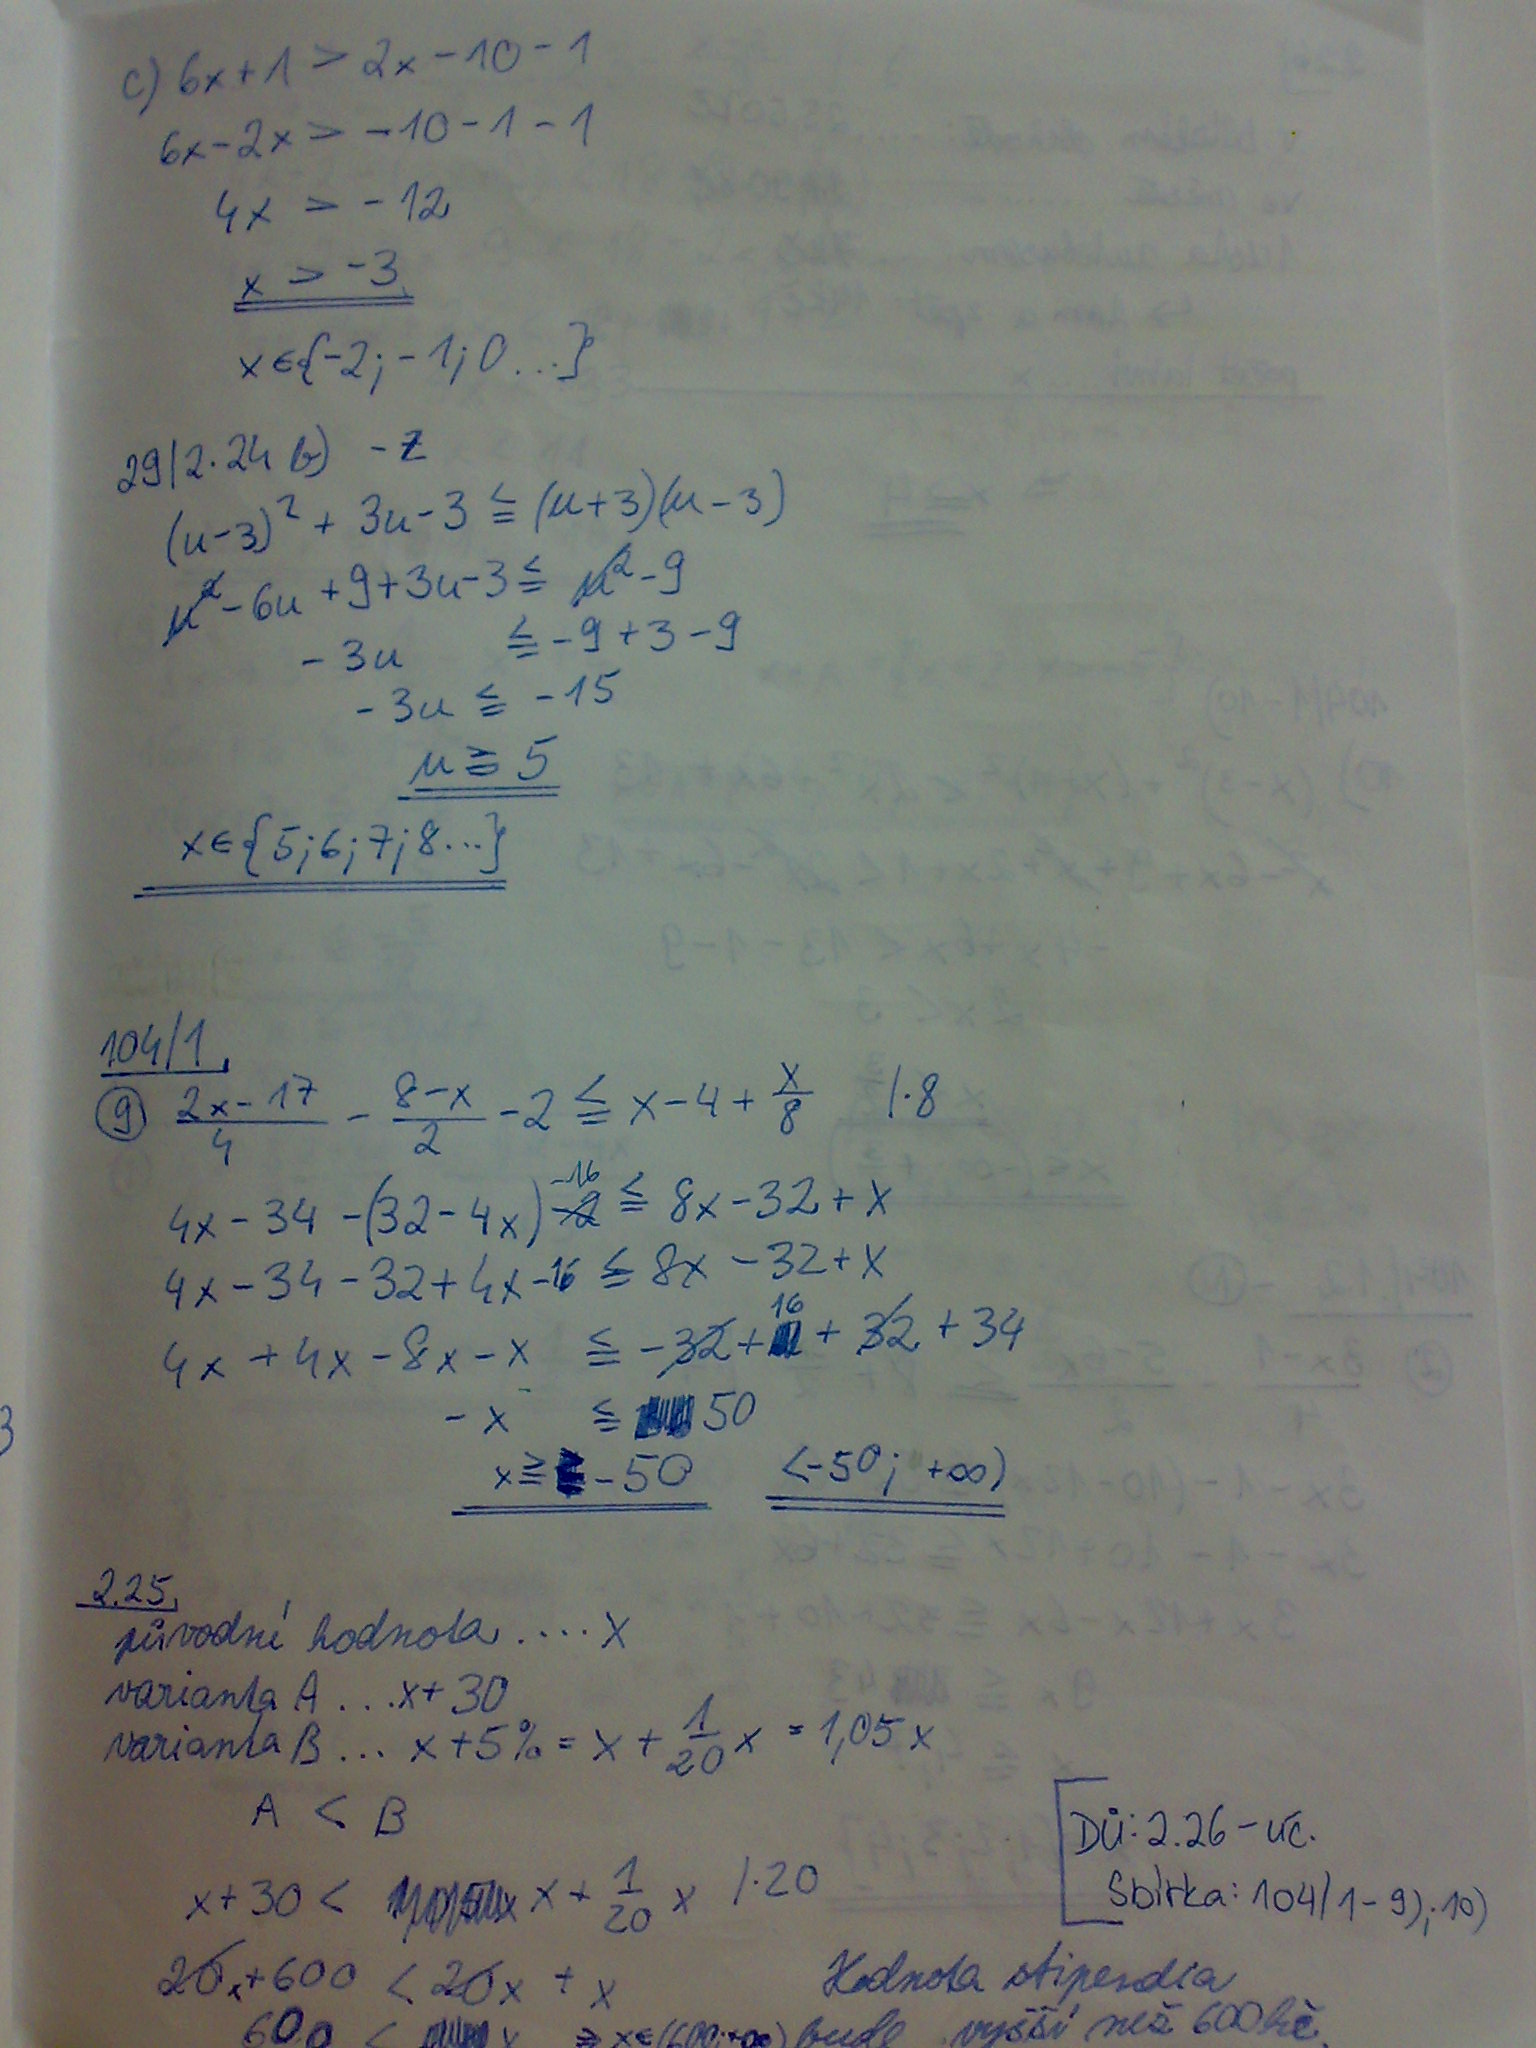 c) 6x+1 > 2x-10-1
6x-2x > -10-1-1
4x > -12
x > -3
x∈{-2; -1; 0...}
29/2.24 b) -Z
(u-3)² + 3u-3 ≦ (u+3)(u-3)
u²-6u+9+3u-3 ≦ u²-9
-3u ≦ -9+3-9
-3u ≦ -15
u ≧ 5
x∈{5;6;7;8...}
104/1
9) 2x-17/4 - 8-x/2 - 2 ≦ x-4+x/8 /·8
4x-34-(32-4x)-16 ≦ 8x-32+x
4x-34-32+4x-16 ≦ 8x-32+x
4x+4x-8x-x ≦ -32+16+32+34
-x ≦ 50
x ≧ -50 <-50; +∞)
2.25
původní hodnota .... x
varianta A ... x+30
varianta B ... x+5% = x+1/20x = 1,05x
A < B
x+30 < x+1/20x /·20
20x+600 < 20x+x
600 < x ⇒ x∈(600;+∞)
DÚ: 2.26-uč.
Sbírka: 104/1-9);10)
Hodnota stipendia
bude vyšší než 600 kč.